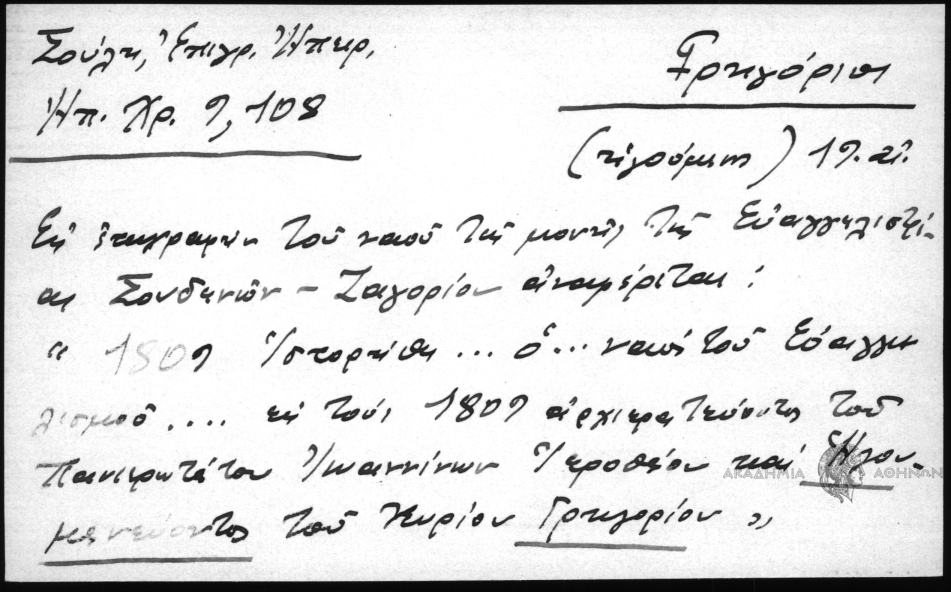 Σούλη, Ἐπιγρ. Ἠπειρ.
Ἠπ. Χρ. 9, 108
Γρηγόριος
(ἡγούμενος) 19. αἰ.
Εἰς ἐπιγραφὴν τοῦ ναοῦ τῆς μονῆς τῆς Εὐαγγελιστρί-
ας Σουδενῶν - Ζαγορίου ἀναφέρεται :
" 1809 Ἱστορήθη ... ὁ ... ναὸς τοῦ Εὐαγγε
λισμοῦ .... εἰς τοὺς 1809 ἀρχιερατεύοντος τοῦ
Πανιερωτάτου Ἰωαννίνων Ἱεροθέου καὶ Ἡγου-
μενεύοντος τοῦ Κυρίου Γρηγορίου "
ΑΚΑΔΗΜΙΑ ΑΘΗΝΩΝ